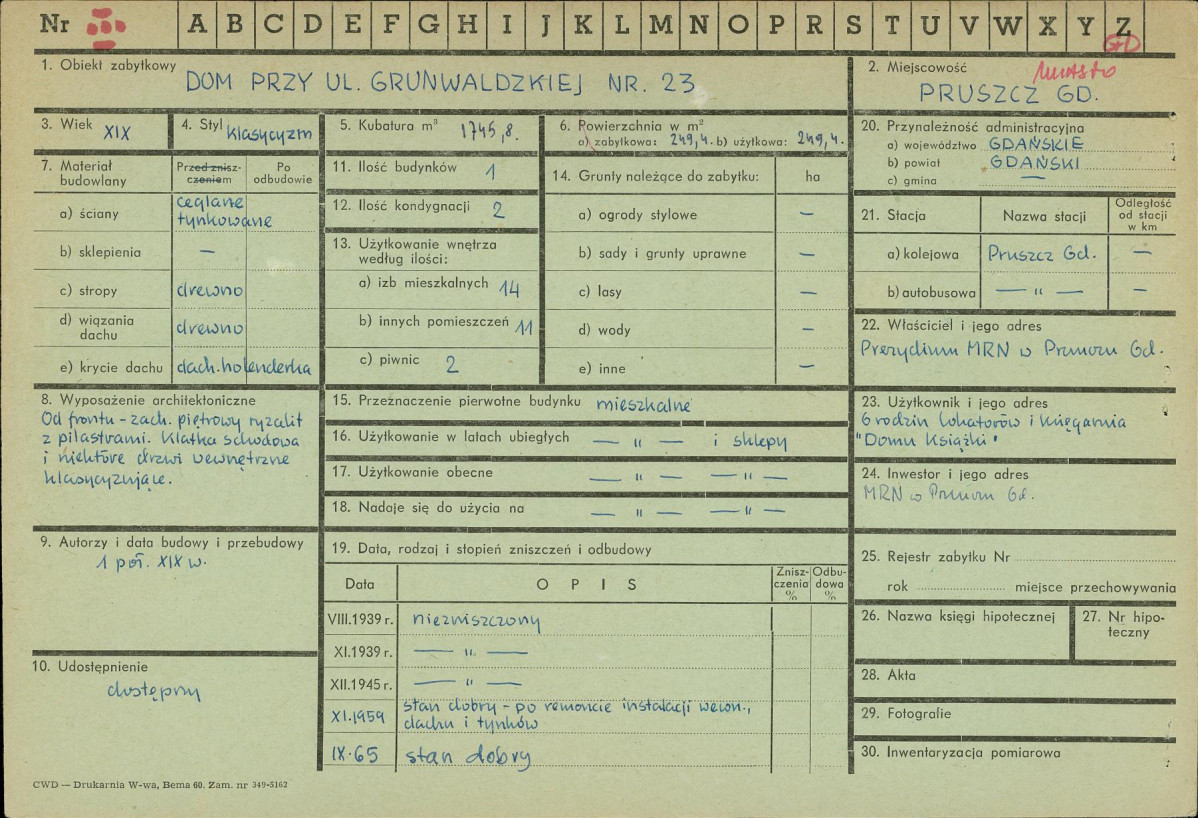 Nr III A B C D E F G H I J K L M N O P R S T U V W X Y Z
GD
1. Obiekt zabytkowy
DOM PRZY UL. GRUNWALDZKIEJ NR. 23
2. Miejscowość
miasto
PRUSZCZ GD.
3. Wiek XIX
4. Styl klasycyzm
5. Kubatura m³ 1745,8.
6. Powierzchnia w m²
a) zabytkowa: 249,4. b) użytkowa: 249,4.
7. Materiał budowlany
Przed zniszczeniem
Po odbudowie
a) ściany ceglane tynkowane
b) sklepienia —
c) stropy drewno
d) wiązania dachu drewno
e) krycie dachu dach. holenderka
8. Wyposażenie architektoniczne
Od frontu - zach. piętrowy ryzalit
z pilastrami. Klatka schodowa
i niektóre drzwi wewnętrzne
klasycyzujące.
9. Autorzy i data budowy i przebudowy
1 poł. XIX w.
10. Udostępnienie
dostępny
11. Ilość budynków 1
12. Ilość kondygnacji 2
13. Użytkowanie wnętrza
według ilości:
a) izb mieszkalnych 14
b) innych pomieszczeń 11
c) piwnic 2
14. Grunty należące do zabytku: ha
a) ogrody stylowe —
b) sady i grunty uprawne —
c) lasy —
d) wody —
e) inne —
15. Przeznaczenie pierwotne budynku mieszkalne
16. Użytkowanie w latach ubiegłych — " — i sklepy
17. Użytkowanie obecne — " — — " —
18. Nadaje się do użycia na — " — — " —
19. Data, rodzaj i stopień zniszczeń i odbudowy
Data OPIS Zniszczenia % Odbudowa %
VIII.1939 r. niezniszczony
XI.1939 r. — " —
XII.1945 r. — " —
XI.1959 stan dobry - po remoncie instalacji wewn.,
dachu i tynków
IX.65 stan dobry
20. Przynależność administracyjna
a) województwo GDAŃSKIE
b) powiat GDAŃSKI
c) gmina —
21. Stacja Nazwa stacji Odległość od stacji w km
a) kolejowa Pruszcz Gd. —
b) autobusowa — " — —
22. Właściciel i jego adres
Prezydium MRN w Pruszczu Gd.
23. Użytkownik i jego adres
6 rodzin lokatorów i księgarnia
"Domu Książki"
24. Inwestor i jego adres
MRN w Pruszczu Gd.
25. Rejestr zabytku Nr
rok miejsce przechowywania
26. Nazwa księgi hipotecznej
27. Nr hipoteczny
28. Akta
29. Fotografie
30. Inwentaryzacja pomiarowa
CWD — Drukarnia W-wa, Bema 60. Zam. nr 349-5162